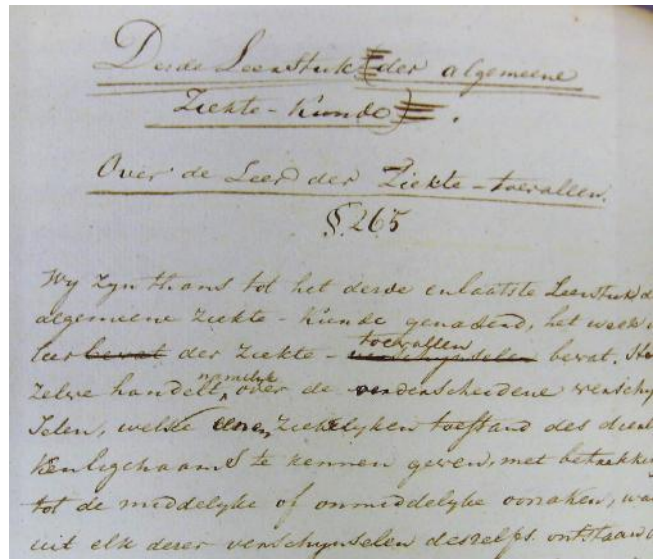 Derde Leerstuk (der algemeene
Ziekte-kunde).
Over de Leer der Ziekte-toevallen.
§. 265
Wy zyn thans tot het derde en laatste Leerstuk d
algemeene Ziekte-kunde genaderd, het welk
leer bevat der Ziekte-verschynselen toevallen bevat. He
zelve handelt namelyk over de onderscheidene verschy
selen, welke eenen Ziekelyken toestand des dierl
ken lighaams te kennen geven, met betrekking
tot de middelyke of onmiddelyke oorzaken, wa
uit elk dezer verschynselen deszelfs ontstaan